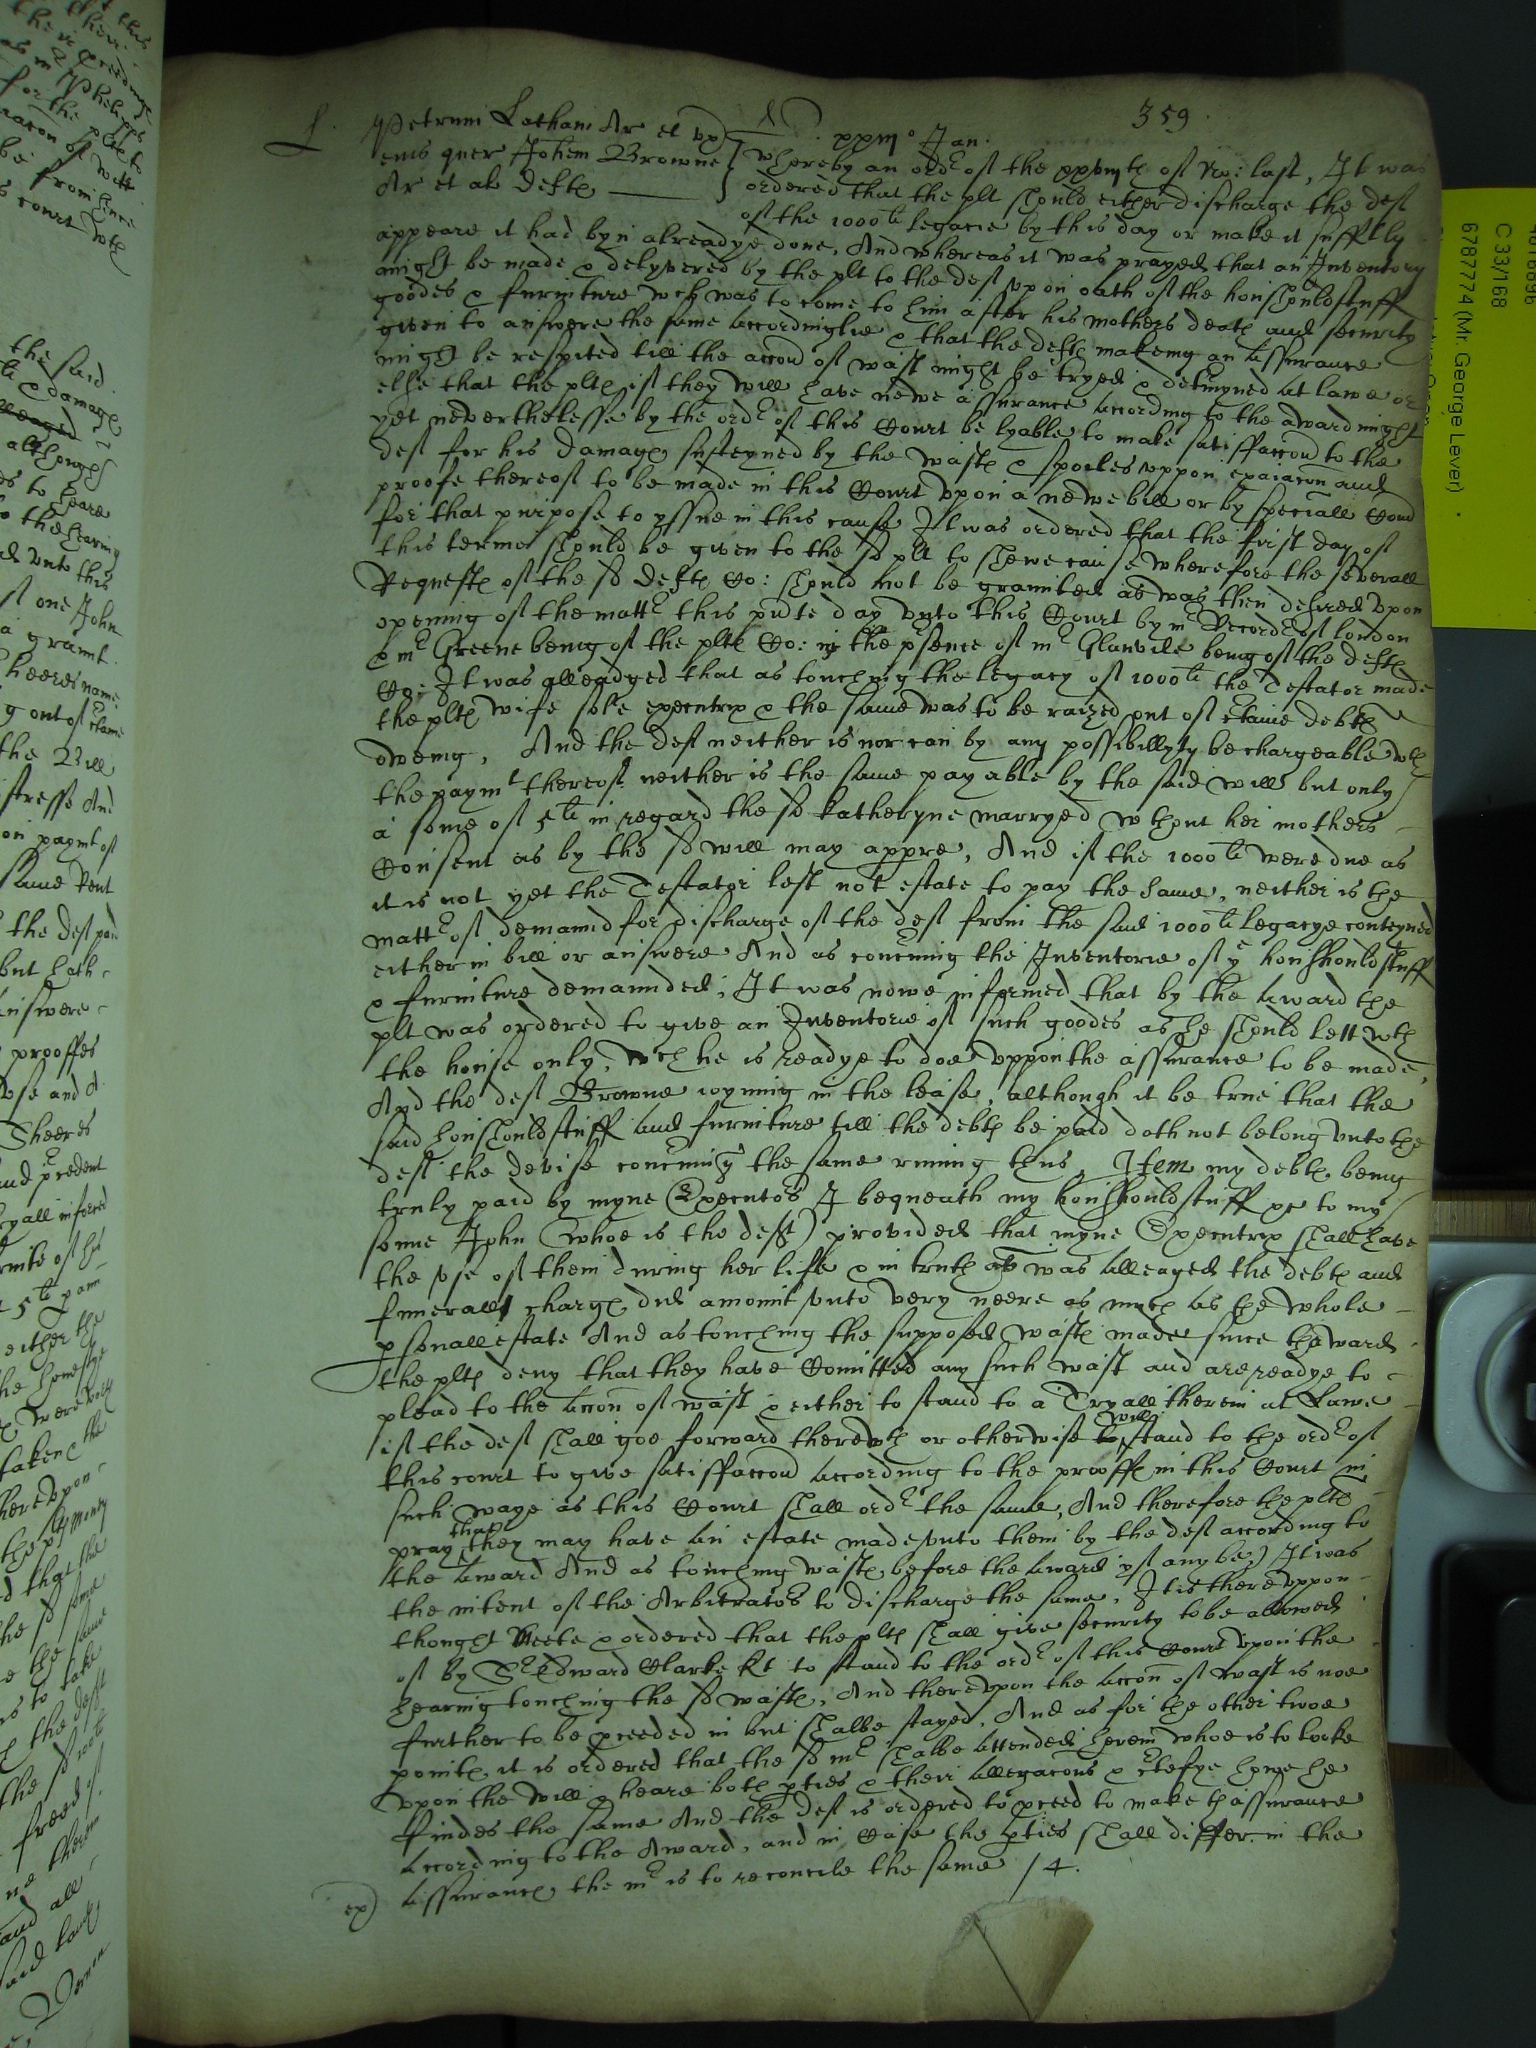 359
L. Petrum Latham Ar et ux
eius quer Johem Browne
Ar et al defte
xxiij° Jan.
Whereby an ordr of the xxviijth of No: last, It was
ordered that the plt should either discharge the deft
of the 1000li legacie by this day or make it suffitly
appeare it had byn alreadye done, And whereas it was prayed that an Inventory
might be made & delyvered by the plt to the deft upon oath of the houshouldstuff
goodes & furniture wch was to come to him after his mothers death and security
given to answere the same accordinglie & that the defte makeing an assurance
might be respited till the accon of wast might be tryed & detmyned at lawe or
else that the plte if they will have newe assurance according to the award might
yet neverthelesse by the ordr of this Court be lyable to make satisfaccon to the
deft for his damage susteyned by the waste & spoiles uppon exaiacon and
proofe thereof to be made in this Court upon a newe bill or by speciall Comd
for that purpose to yssue in this cause It was ordered that the first day of
this terme should be given to the sd plt to shewe cause wherefore the severall
Requeste of the sd defte Co: should not be graunted as was then desired Upon
opening of the mattr this pnte day unto this Court by mr Recordr of London
& mr Greene being of the plte Co: in the psence of mr Glanvile being of the defte
Co: It was alleadged that as touching the legacy of 1000li the Testator made
the plte wife sole executrix & the same was to be raized out of ctaine debte
oweing, And the deft neither is nor can by any possibillyty be chargeable wth
the paymt thereof neither is the same payable by the said will but only
a some of 5li in regard the sd Katheryne marryed wthout her mothers
Consent as by the sd will may appre, And if the 1000li were due as
it is not yet the Testator left not estate to pay the same, neither is the
mattr of demaund for discharge of the deft from the said 1000li legacye conteyned
either in bill or answere And as concrning the Inventorie of ye houshouldstuff
& furniture demaunded, It was nowe informed that by the Award the
plt was ordered to give an Inventorie of such goodes as he should lett wth
the house only, wch he is readye to doe uppon the assurance to be made,
And the deft Browne ioyning in the lease, although it be true that the
said houshouldstuff and furniture till the debte be paid doth not belong unto the
deft the devise concrning the same runing thus, Item my debte being
truly paid by myne Executors I bequeath my houshouldstuff &c to my
sonne John (whoe is the deft) provided that myne Executrix shall have
the use of them during her life & in truth as was alleaged the debte and
funerall charge did amount unto very neere as much as the whole
psonall estate And as touching the supposed waste made since thaward
the plte deny that they have Comitted any such wast and are readye to
plead to the accon of wast & either to stand to a Tryall therein at Lawe
if the deft shall goe forward therewth or otherwise will stand to the ordr of
this court to give satisfaccon according to the prooffe in this Court in
such waye as this Court shall ordr the same, And therefore the plte
pray that they may have an estate made unto them by the deft according to
the Award And as touching waste before the Award yf any be) It was
the intent of the Arbitrators to discharge the same, It is thereuppon
thought Meete & ordered that the plte shall give security to be allowed
of by Sr Edward Clarke Kt to stand to the ordr of this Court upon the
hearing touching the sd waste, And thereupon the accon of wast is noe
further to be pceeded in but shalbe stayed, And as for the other twoe
pointe it is ordered that the sd mr shalbe attended herein whoe is to looke
upon the will & heare both pties & their allegacons & ctefye howe he
findes the same And the deft is ordered to pceed to make thassurance
according to the Award, and in Case the pties shall differ in the
assurance the mr is to reconcile the same / 4.
ex)
C 33/168
6787774 (Mr. George Lever)